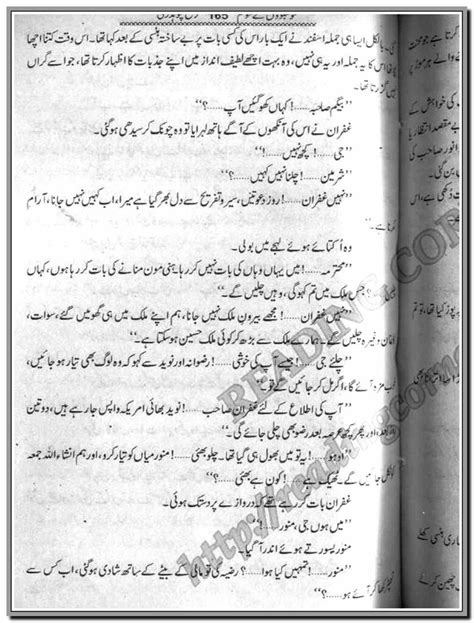 165
جی۔ بالکل ایسا ہی جملہ اسفند نے ایک بار اس کی کسی بات پر بے ساختہ ہنسی کے بعد کہا تھا۔ اس وقت کتنا اچھا
جملہ اور یہ ہی نہیں، وہ بہت اچھے لطیف انداز میں اپنے جذبات کا اظہار کرتا تھا، جو اسے گراں
گزرتا تھا۔
"بیگم صاحبہ......! کہاں کھو گئیں آپ......؟"
غفران نے اس کی آنکھوں کے آگے ہاتھ لہرایا تو وہ چونک کر سیدھی ہو گئی۔
"جی......! کچھ نہیں......!"
"شرمین......! چلنا نہیں کہیں......؟"
"نہیں غفران......! روز دعوتیں، سیر و تفریح سے دل بھر گیا ہے میرا، اب کہیں نہیں جانا، آرام
کرنا ہے۔"
وہ اکتائے ہوئے لہجے میں بولی۔
"محترمہ......! میں یہاں وہاں کی بات نہیں کر رہا، ہنی مون منانے کی بات کر رہا ہوں، کہاں
چلیں؟ جس ملک میں تم کہو گی، وہیں چلیں گے۔"
"نہیں غفران......! مجھے بیرون ملک نہیں جانا، ہم اپنے ملک میں ہی گھومیں گے، سوات،
کاغان وغیرہ چلیں گے۔ ہمارے ملک سے بڑھ کر کوئی ملک حسین ہو سکتا ہے۔"
"چلئے جی......! جیسے آپ کی خوشی......! رضوانہ اور نوید سے کہو کہ وہ لوگ بھی تیار ہو جائیں،
خوب مزہ آئے گا، اگر مل کر جائیں گے تو۔"
"آپ کی اطلاع کے لئے غفران صاحب......! نوید بھائی امریکہ واپس جا رہے ہیں، دو تین
اور پھر کچھ عرصہ بعد رضو بھی چلی جائے گی۔"
"اوہو......! یہ تو میں بھول ہی گیا تھا۔ چلو بھئی......! منور میاں کو تیار کرو، اور ہم انشاء اللہ جمعہ
کو نکل جائیں گے۔ ٹھیک ہے......! کون ہے بھئی......؟"
غفران بات کرتے کرتے تھے کہ دروازے پر دستک ہوئی۔
"میں ہوں جی، منور......!"
منور بسورتے ہوئے اندر آ گیا۔
"منور......! تمہیں کیا ہوا......؟ رضیہ کی تو مالی کے بیٹے کے ساتھ شادی ہو گئی، اب کس سے
کھا کر آئے ہو......؟"
http://readingcorner
READING COR